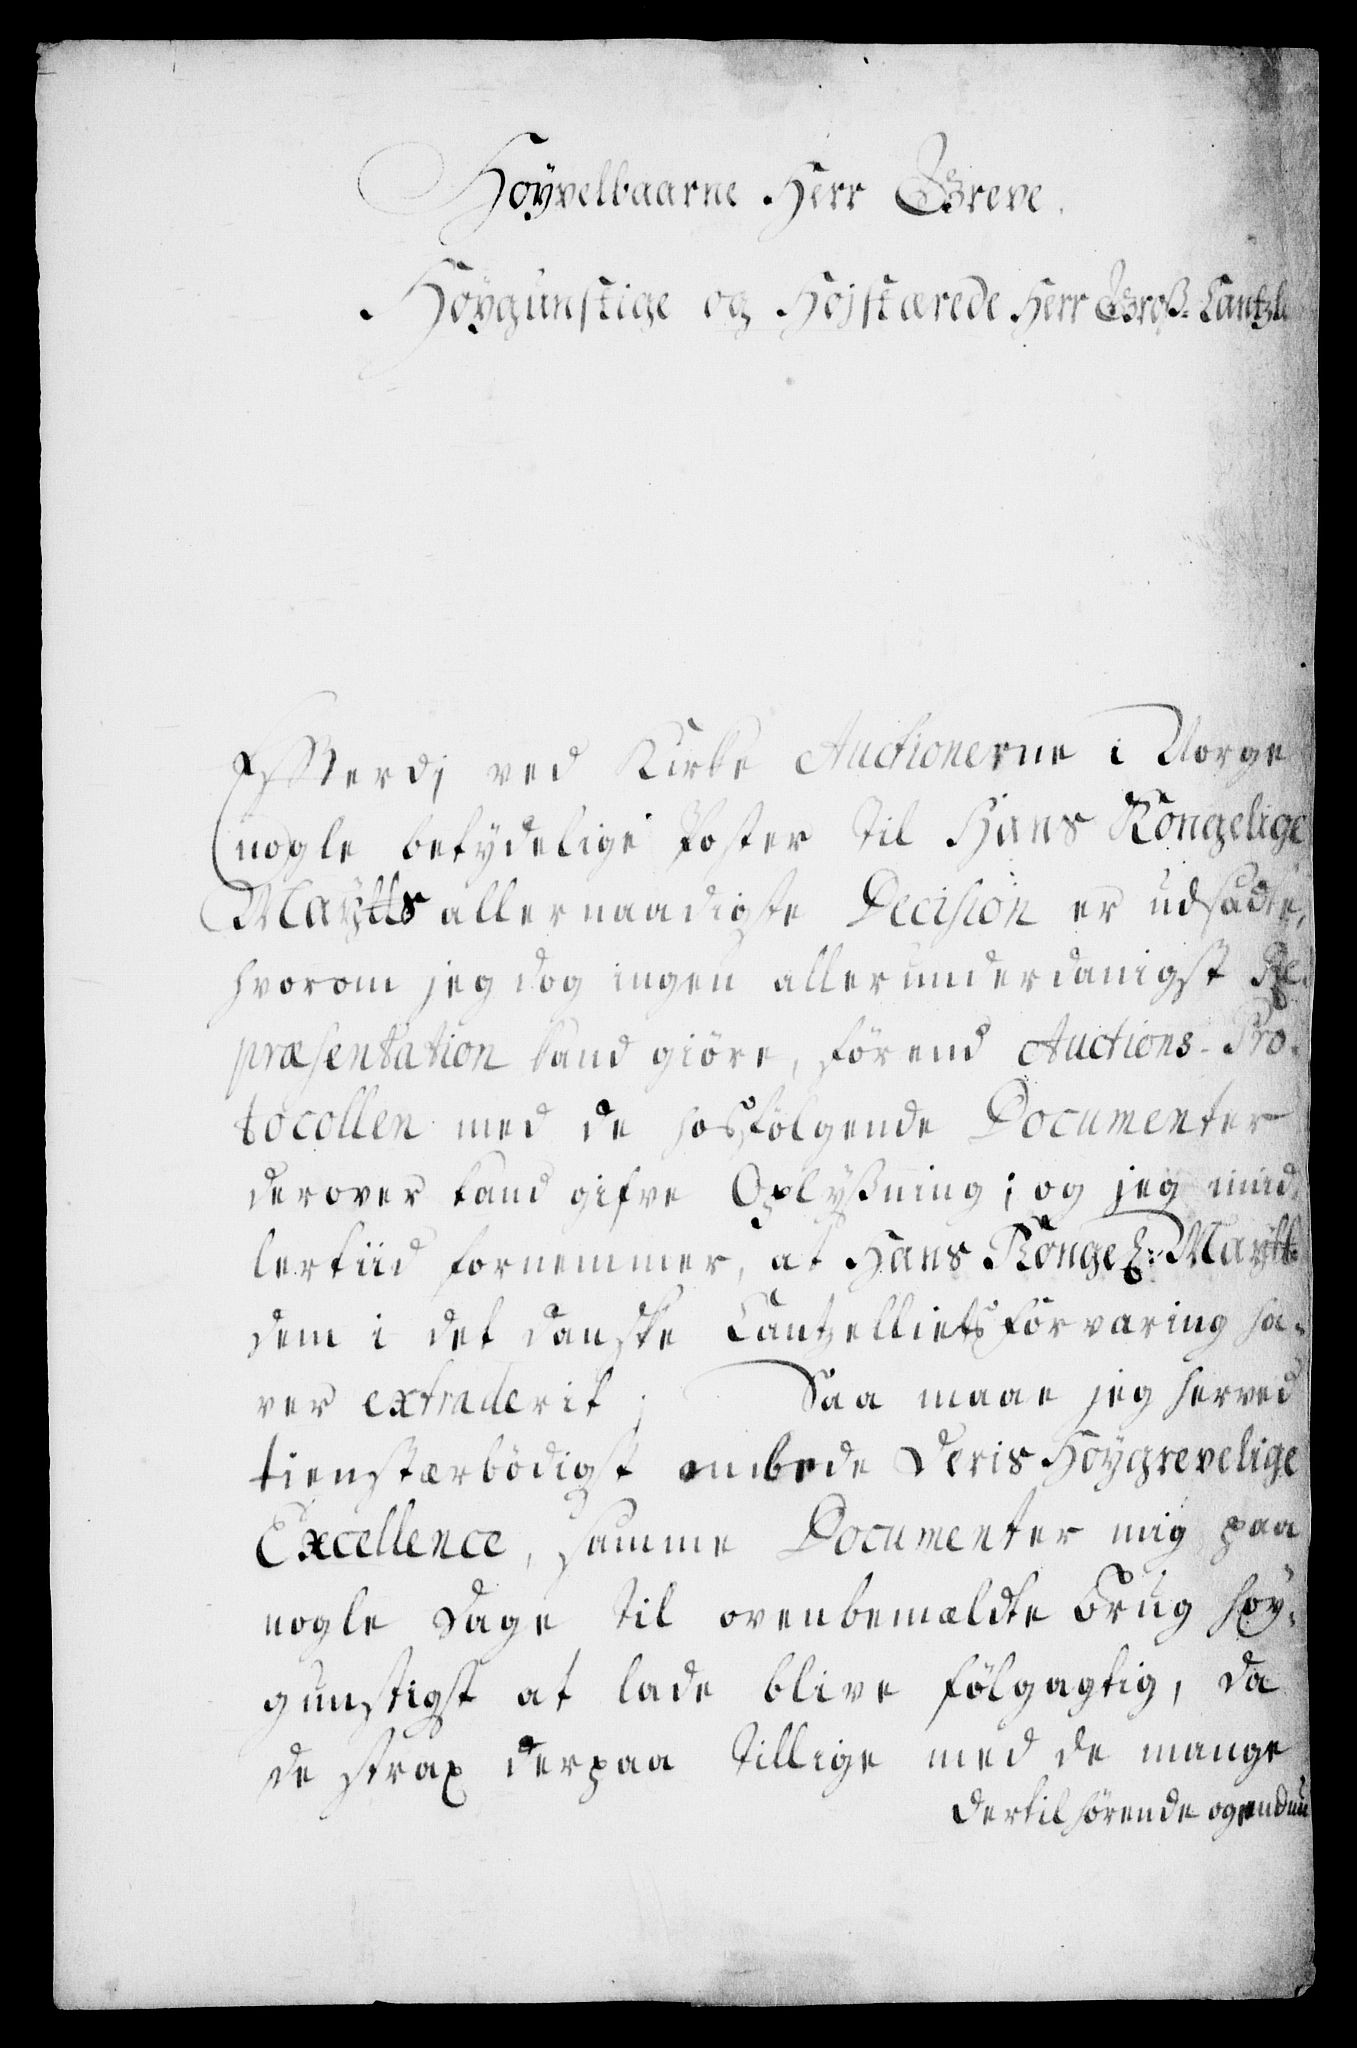 Høyvelbaarne Herr Greve.
Høygunstige og Højstærede Herr Groß-Cantzle
Effterdj ved Kirke Auctionerne i Norge
nogle betydelige Poster til Hans Kongelige
Maÿtts allernaadigste Decision er udsadte,
hvorom jeg dog ingen allerunderdanigst Re-
præsentation kand giöre, förend Auctions-Pro-
tocollen med de hosfölgende Documenter
derover kand gifve Oplÿßning; og jeg mid-
lertiid fornemmer, at Hans Kongel: Maÿtt:
dem i det danske Cantzelliets forvaring ha-
ver extraderit; Saa maae jeg herved
tienstærbödigst ombede Deris Høygrevelige
Excellence, samme Documenter mig paa
nogle Dage til ovenbemældte brug høy-
gunstigst at lade blive fölgagtig, da
de strax derpaa tillige med de mange
dertil hørende og endnu